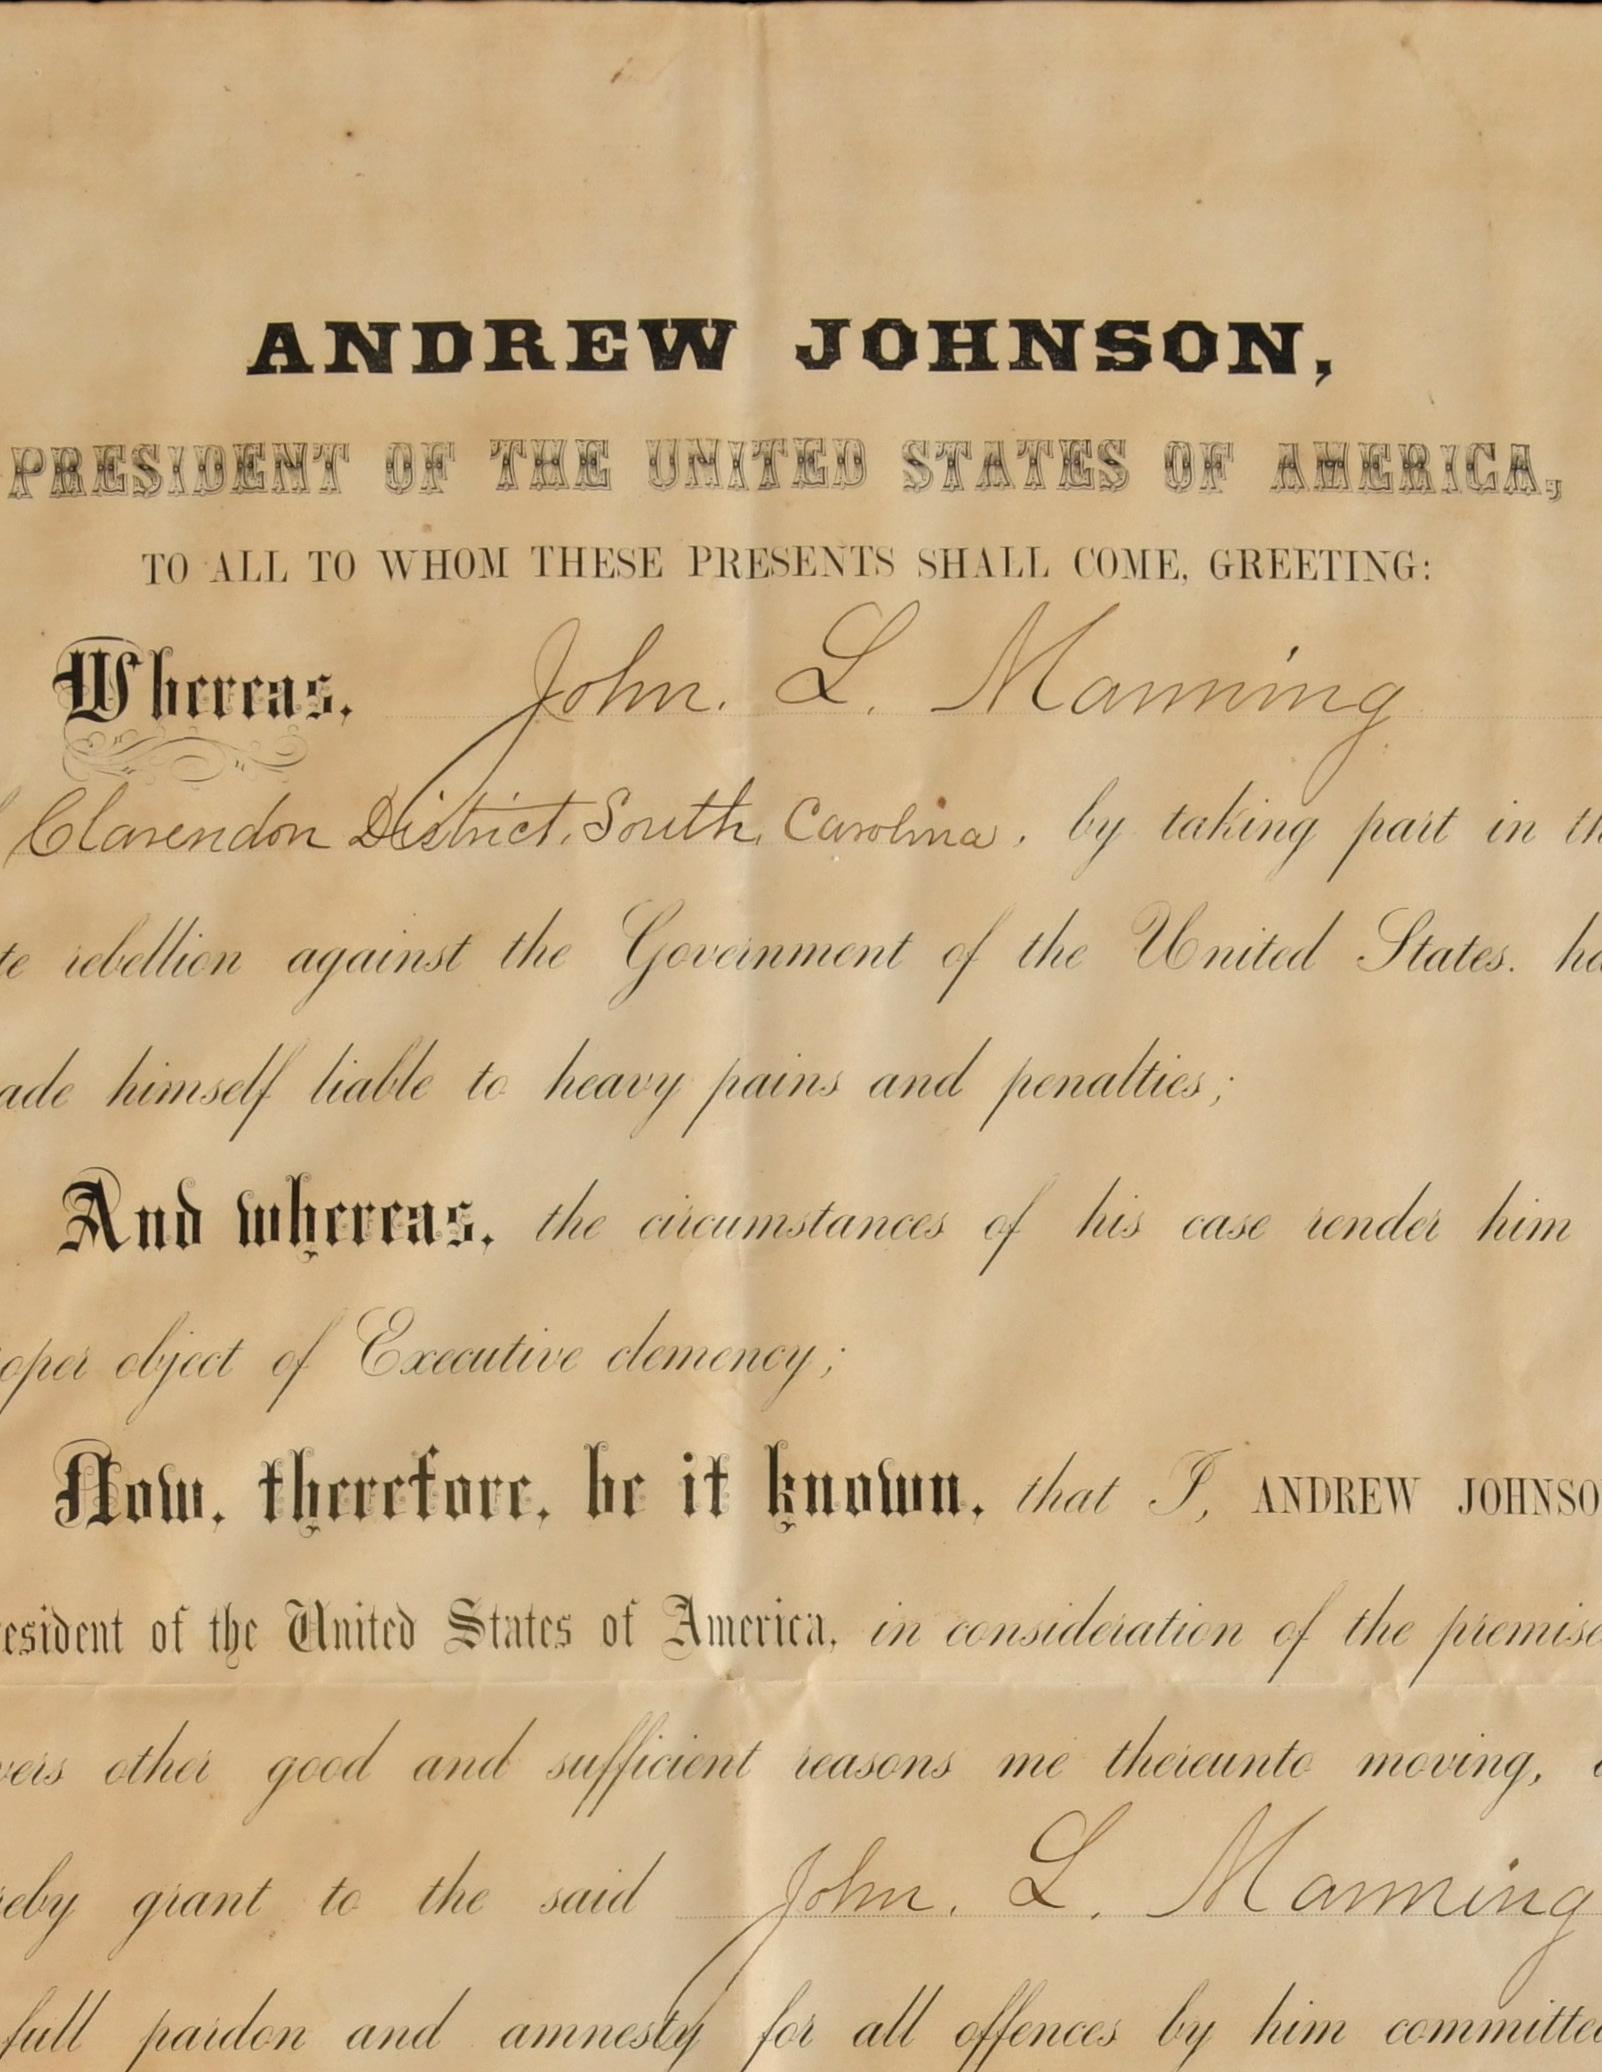 ANDREW JOHNSON,
PRESIDENT OF THE UNITED STATES OF AMERICA,
TO ALL TO WHOM THESE PRESENTS SHALL COME, GREETING:
Whereas, John. L. Manning
Clarendon District, South, Carolina, by taking part in th
te rebellion against the Government of the United States. ha
ade himself liable to heavy pains and penalties;
And whereas, the circumstances of his case render him
oper object of Executive clemency;
Now, therefore, be it known, that I, ANDREW JOHNSO
resident of the United States of America, in consideration of the premise
vers other good and sufficient reasons me thereunto moving,
reby grant to the said John. L. Manning
full pardon and amnesty for all offences by him committed